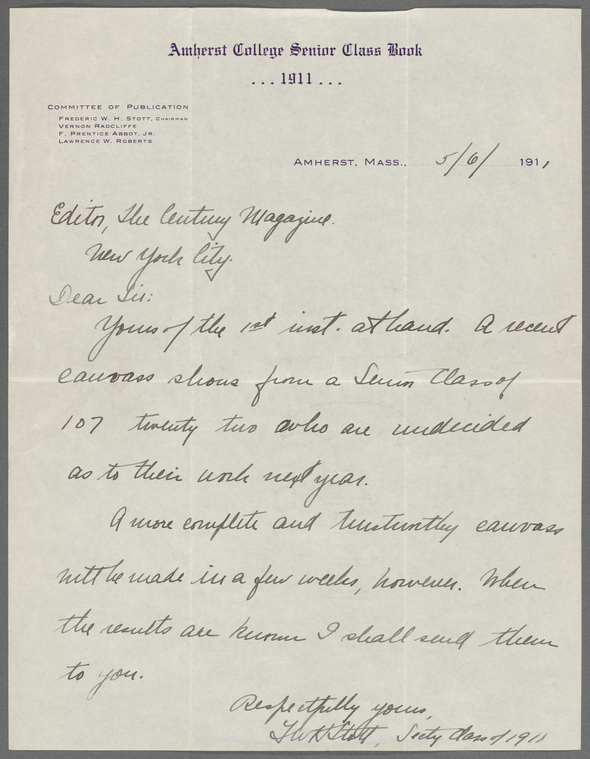 Amherst College Senior Class Book
... 1911 ...
COMMITTEE OF PUBLICATION
FREDERIC W. H. STOTT, CHAIRMAN
VERNON RADCLIFFE
F. PRENTICE ABBOT, JR.
LAWRENCE W. ROBERTS
AMHERST, MASS., 5/6/ 1911
Editor, The Century Magazine.
New York City.
Dear Sir:
Yours of the 1st inst. at hand. A recent
canvass shows from a Senior Class of
107 twenty two who are undecided
as to their work next year.
A more complete and trustworthy canvass
will be made in a few weeks, however. When
the results are known I shall send them
to you.
Respectfully yours,
FWH Stott, Secty Class of 1911